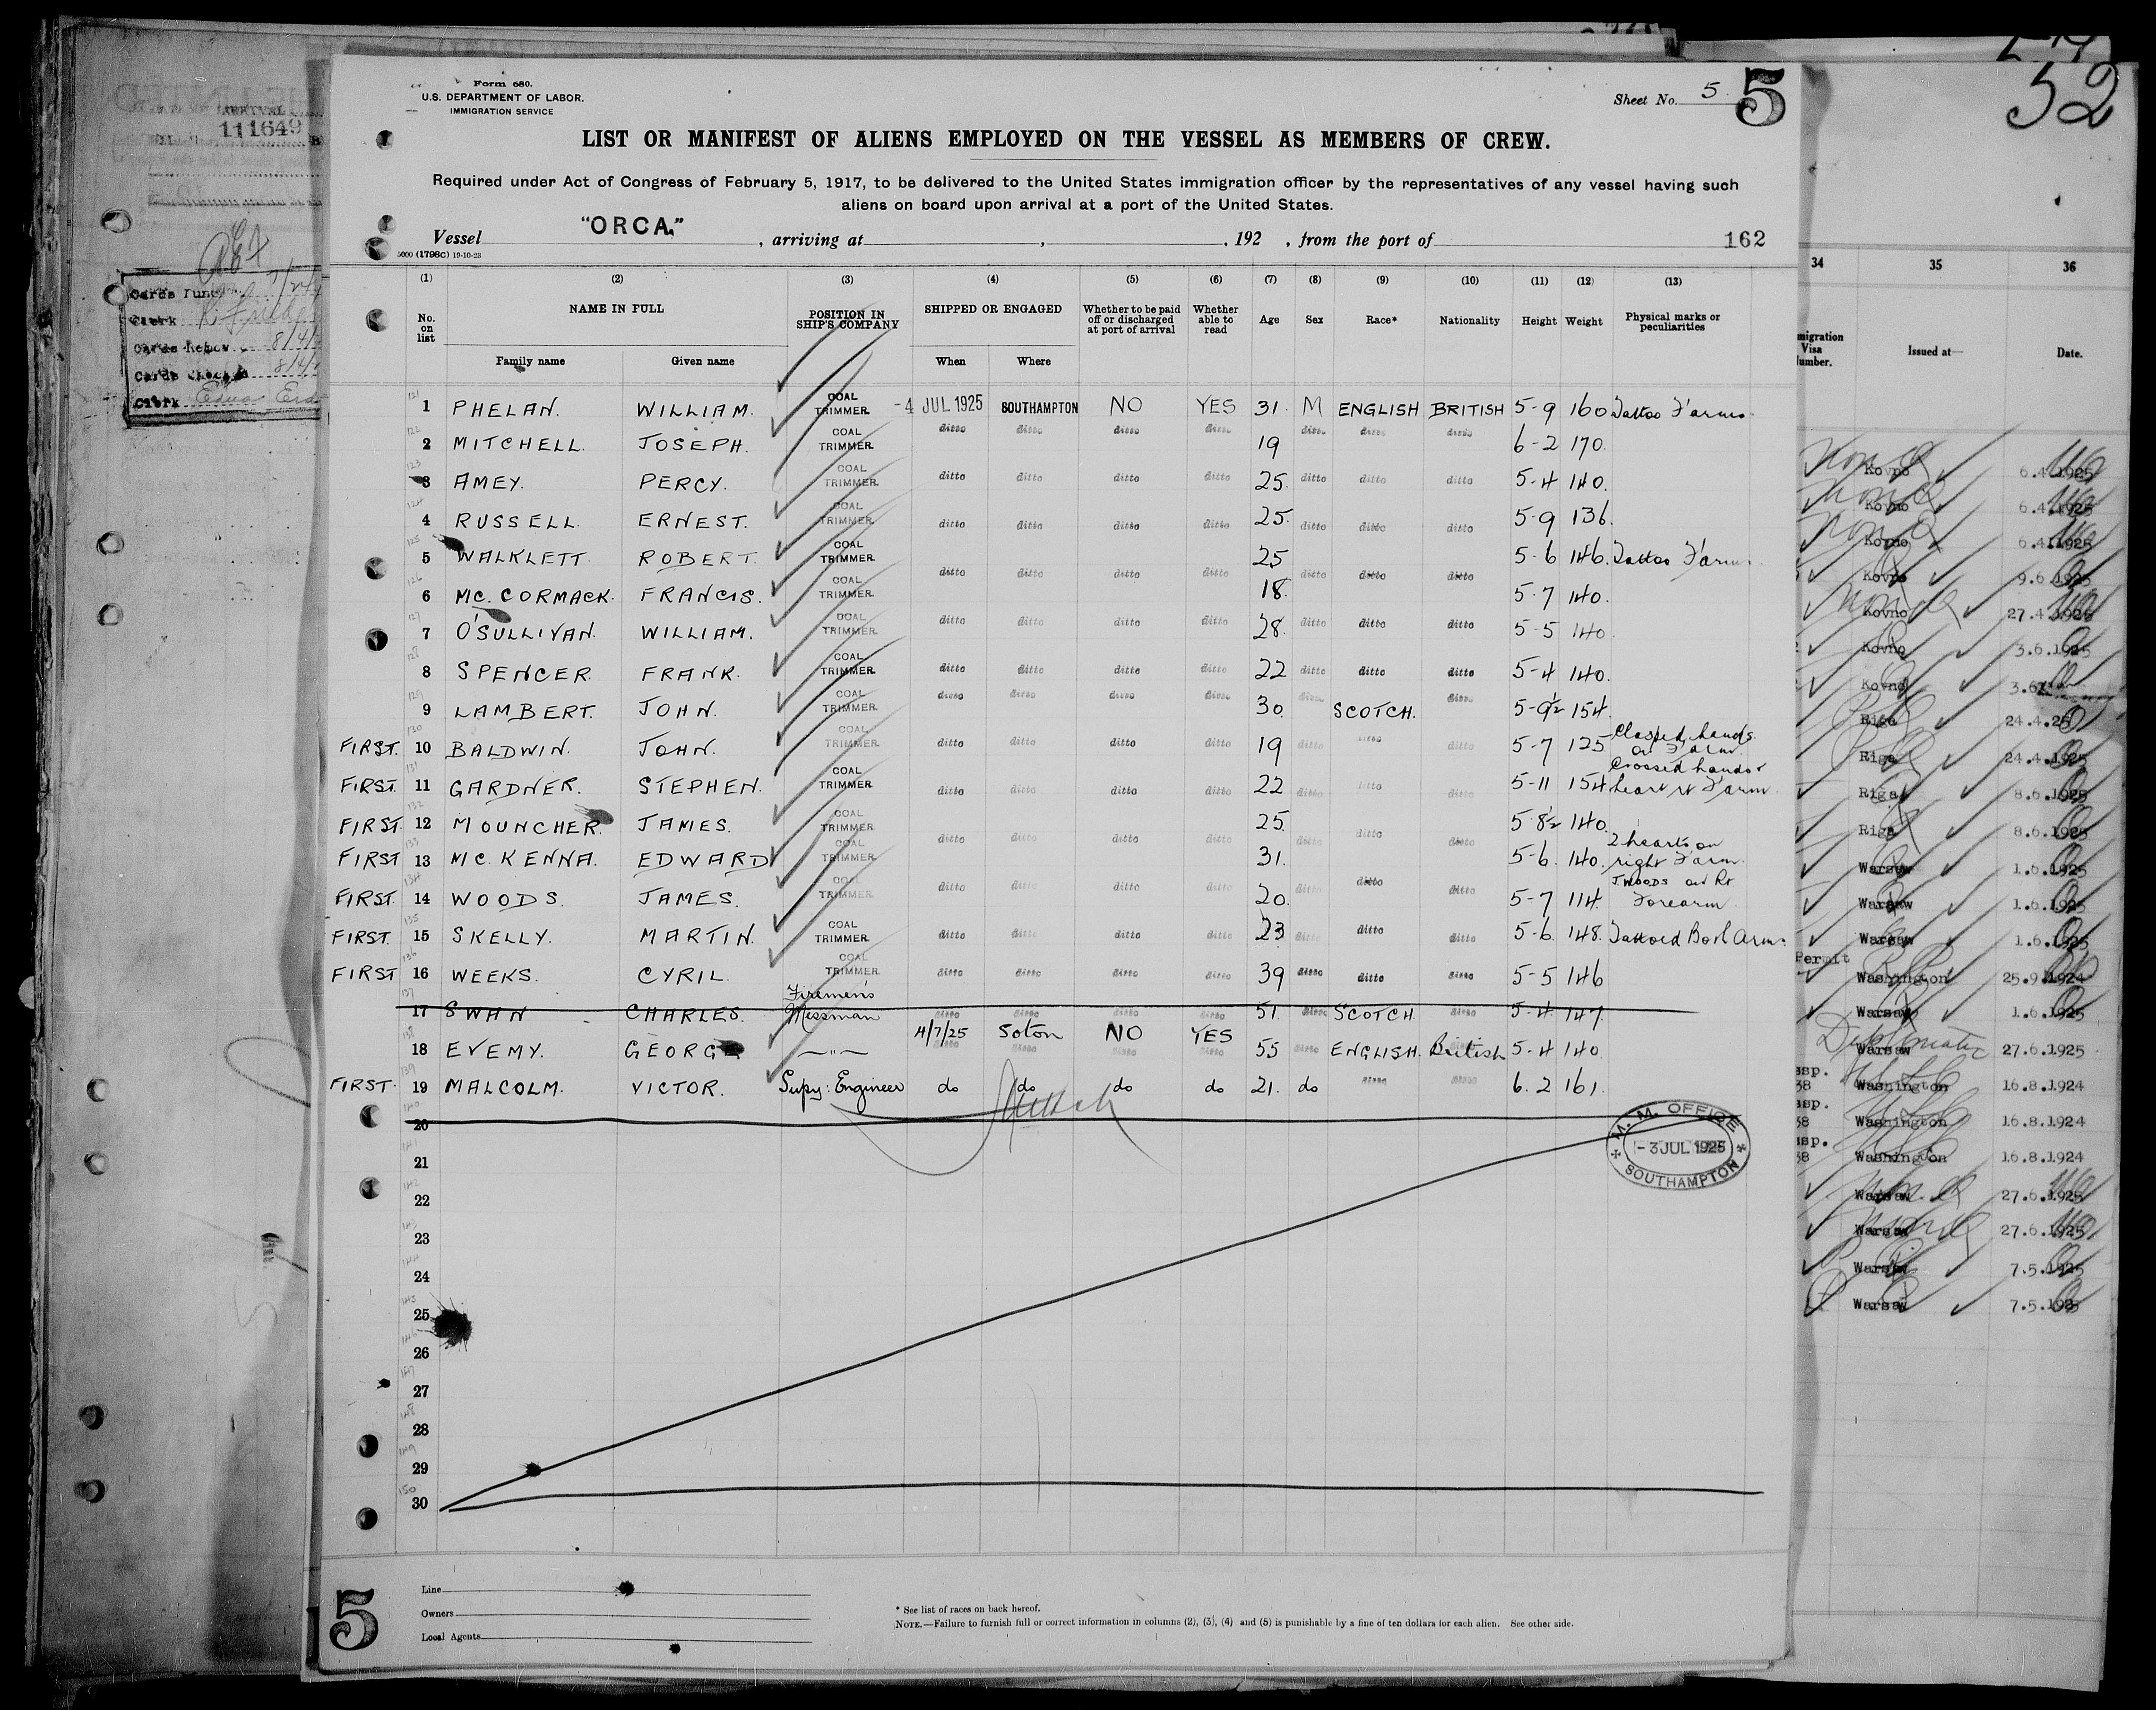 Form 680.
U.S. DEPARTMENT OF LABOR.
IMMIGRATION SERVICE
Sheet No. 5 5
LIST OR MANIFEST OF ALIENS EMPLOYED ON THE VESSEL AS MEMBERS OF CREW.
Required under Act of Congress of February 5, 1917, to be delivered to the United States immigration officer by the representatives of any vessel having such
aliens on board upon arrival at a port of the United States.
Vessel "ORCA." , arriving at , , 192 , from the port of 162
5000 (1798C) 19-10-23
(1) (2) (3) (4) (5) (6) (7) (8) (9) (10) (11) (12) (13)
No. on list NAME IN FULL POSITION IN SHIP'S COMPANY SHIPPED OR ENGAGED Whether to be paid off or discharged at port of arrival Whether able to read Age Sex Race* Nationality Height Weight Physical marks or peculiarities
Family name Given name When Where
121 1 PHELAN. WILLIAM. COAL TRIMMER -4 JUL 1925 SOUTHAMPTON NO YES 31. M ENGLISH BRITISH 5-9 160 Tattoo F'arms.
122 2 MITCHELL. JOSEPH. COAL TRIMMER ditto ditto ditto ditto 19 ditto ditto ditto 6-2 170.
123 3 AMEY. PERCY. COAL TRIMMER ditto ditto ditto ditto 25. ditto ditto ditto 5-4 140.
124 4 RUSSELL. ERNEST. COAL TRIMMER ditto ditto ditto ditto 25. ditto ditto ditto 5-9 136.
125 5 WALKLETT. ROBERT. COAL TRIMMER ditto ditto ditto ditto 25 ditto ditto ditto 5-6 146. Tattoo F'arm
126 6 MC. CORMACK. FRANCIS. COAL TRIMMER 18. 5-7 140.
127 7 O'SULLIVAN. WILLIAM. COAL TRIMMER ditto ditto ditto ditto 28. ditto ditto ditto 5-5 140
128 8 SPENCER. FRANK. COAL TRIMMER ditto ditto ditto ditto 22 ditto ditto ditto 5-4 140.
129 9 LAMBERT. JOHN. COAL TRIMMER ditto ditto ditto ditto 30. ditto SCOTCH. ditto 5-9½ 154.
FIRST. 130 10 BALDWIN. JOHN. COAL TRIMMER ditto ditto ditto ditto 19 ditto ditto ditto 5-7 125 Clasped hands on F'arm.
FIRST. 131 11 GARDNER. STEPHEN. COAL TRIMMER ditto ditto ditto ditto 22 ditto ditto ditto 5-11 154 Crossed hands & heart rt F'arm.
FIRST. 132 12 MOUNCHER. JAMES. COAL TRIMMER ditto ditto ditto ditto 25. ditto ditto ditto 5-8½ 140.
FIRST 133 13 MC. KENNA. EDWARD COAL TRIMMER 31. 5-6. 140. 2 hearts on right F'arm.
FIRST. 134 14 WOODS. JAMES. COAL TRIMMER ditto ditto ditto ditto 20. ditto ditto ditto 5-7 114. J. WOODS on Rt Forearm
FIRST. 135 15 SKELLY. MARTIN. COAL TRIMMER ditto ditto ditto ditto 23 ditto ditto ditto 5-6. 148.
FIRST 136 16 WEEKS. CYRIL. COAL TRIMMER ditto ditto ditto ditto 39 ditto ditto ditto 5-5 146
137 17 SWAN CHARLES. Firemen's Messman ditto ditto ditto ditto 51. ditto SCOTCH. ditto 5-4 147.
138 18 EVEMY. GEORGE —"— 4/7/25 Soton NO YES 55 ditto ENGLISH. British 5-4 140
FIRST. 139 19 MALCOLM. VICTOR. Supy: Engineer do do do do 21. do ditto ditto 6.2 161.
140 20
M. M. OFFICE
-3 JUL 1925
SOUTHAMPTON
141 21
142 22
143 23
144 24
145 25
146 26
147 27
148 28
149 29
150 30
5
Line
Owners
Local Agents
* See list of races on back hereof.
NOTE.—Failure to furnish full or correct information in columns (2), (3), (4) and (5) is punishable by a fine of ten dollars for each alien. See other side.
111649
Clerk
Clerk Edna
52
34 35 36
Visa Issued at— Date.
Kovno 6.4.1925
Kovno 6.4.1925
Kovno 6.4.1925
Kovno 9.6.1925
Kovno 27.4.1925
Kovno 3.6.1925
Kovno
Riga 24.4.25
Riga 24.4.1925
Riga 8.6.1925
Riga 8.6.1925
Warsaw 1.6.1925
Warsaw 1.6.1925
Warsaw 1.6.1925
Permit
Washington 25.9.1924
Warsaw 1.6.1925
Diplomatic
Warsaw 27.6.1925
Washington 16.8.1924
Washington 16.8.1924
Washington 16.8.1924
Warsaw 27.6.1925
Warsaw 27.6.1925
Warsaw 7.5.1925
Warsaw 7.5.1925